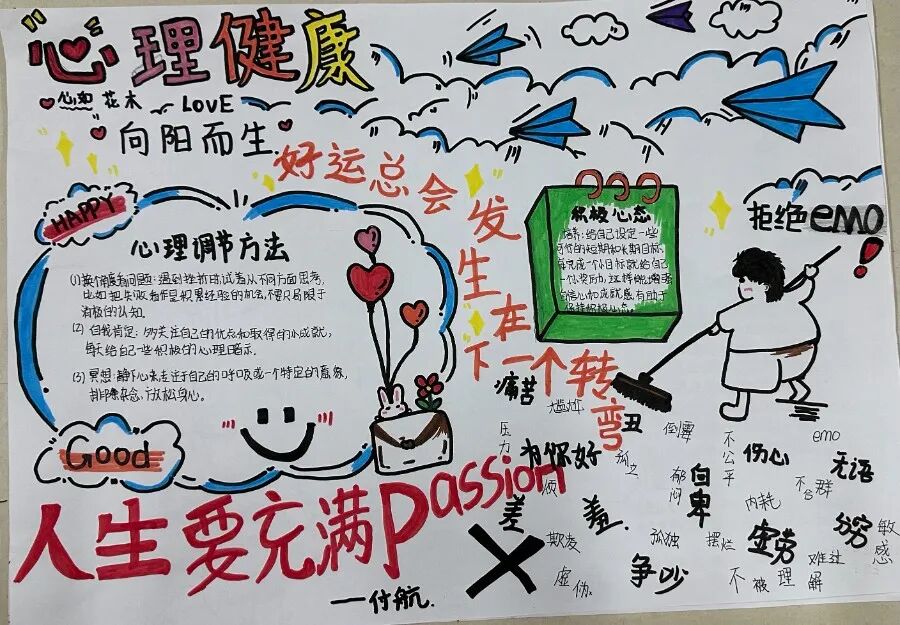 心理健康
心如花木
LOVE
向阳而生
好运总会
发生在
下一个转
弯
HAPPY
心理调节方法
(1)换个角度看问题:遇到挫折时,试着从不同方面思考,
比如把失败看作是积累经验的机会,不要只局限于
消极的认知。
(2) 自我肯定:多关注自己的优点和取得的小成就,
每天给自己一些积极的心理暗示。
(3) 冥想:静下心来专注于自己的呼吸或一个特定的意象,
排除杂念,放松身心。
Good
积极心态
培养:给自己设定一些
可行的短期和长期目标,
每完成一个小目标就给自己
一个小奖励,这样能增强
自信心和成就感,有助于
保持积极心态。
拒绝emo
!
痛苦
尴尬
丑
倒霉
不公平
伤心
emo
无语
压力
有你好
烦
孤立
郁闷
自卑
内耗
不合群
差
羞
欺凌
孤独
摆烂
虚劳
难过
穷
敏感
虚伪
争吵
不被理解
人生要充满passion
——付航.